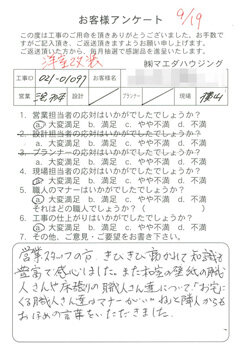 お客様アンケート
9/19
この度は工事のご用命を頂きありがとうございました。お手数で
すがご記入頂き、ご返送頂きますようお願い申し上げます。
ご返送頂いた方から、毎月抽選で感謝品を進呈いたします。
洋室改装
㈱マエダハウジング
工事ID 021-01097 お客様名
営業 設計 プランナー 現場 横山
1. 営業担当者の対応はいかがでしたでしょうか?
a 大変満足 b 満足 c やや不満 d 不満
2. 設計担当者の対応はいかがでしたでしょうか?
a 大変満足 b 満足 c やや不満 d 不満
3. プランナーの対応はいかがでしたでしょうか?
a 大変満足 b 満足 c やや不満 d 不満
4. 現場担当者の対応はいかがでしたでしょうか?
a 大変満足 b 満足 c やや不満 d 不満
5. 職人のマナーはいかがでしたでしょうか?
a 大変満足 b 満足 c やや不満 d 不満
それはどの職人でしょうか?( )
6. 工事の仕上がりはいかがでしたでしょうか?
a 大変満足 b 満足 c やや不満 d 不満
7. その他、ご意見・ご要望をお書き下さい。
営業スタッフの方、きびきび動かれて知識も
豊富で感心しました。またお宅の壁紙の職
人さんや床張りの職人さん達について「お宅に
くる職人さん達はマナーがいいね」と隣人からも
おほめの言葉をいただきました。